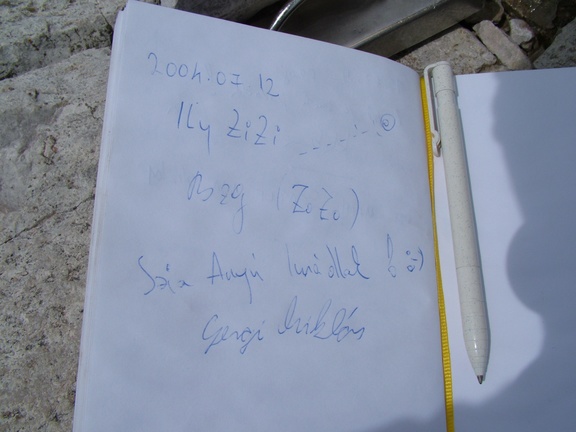 2004.07.12
Ily ZiZi
Bzg (ZiZi)
Szia Anyu imádlak :)
Gergi Miklós